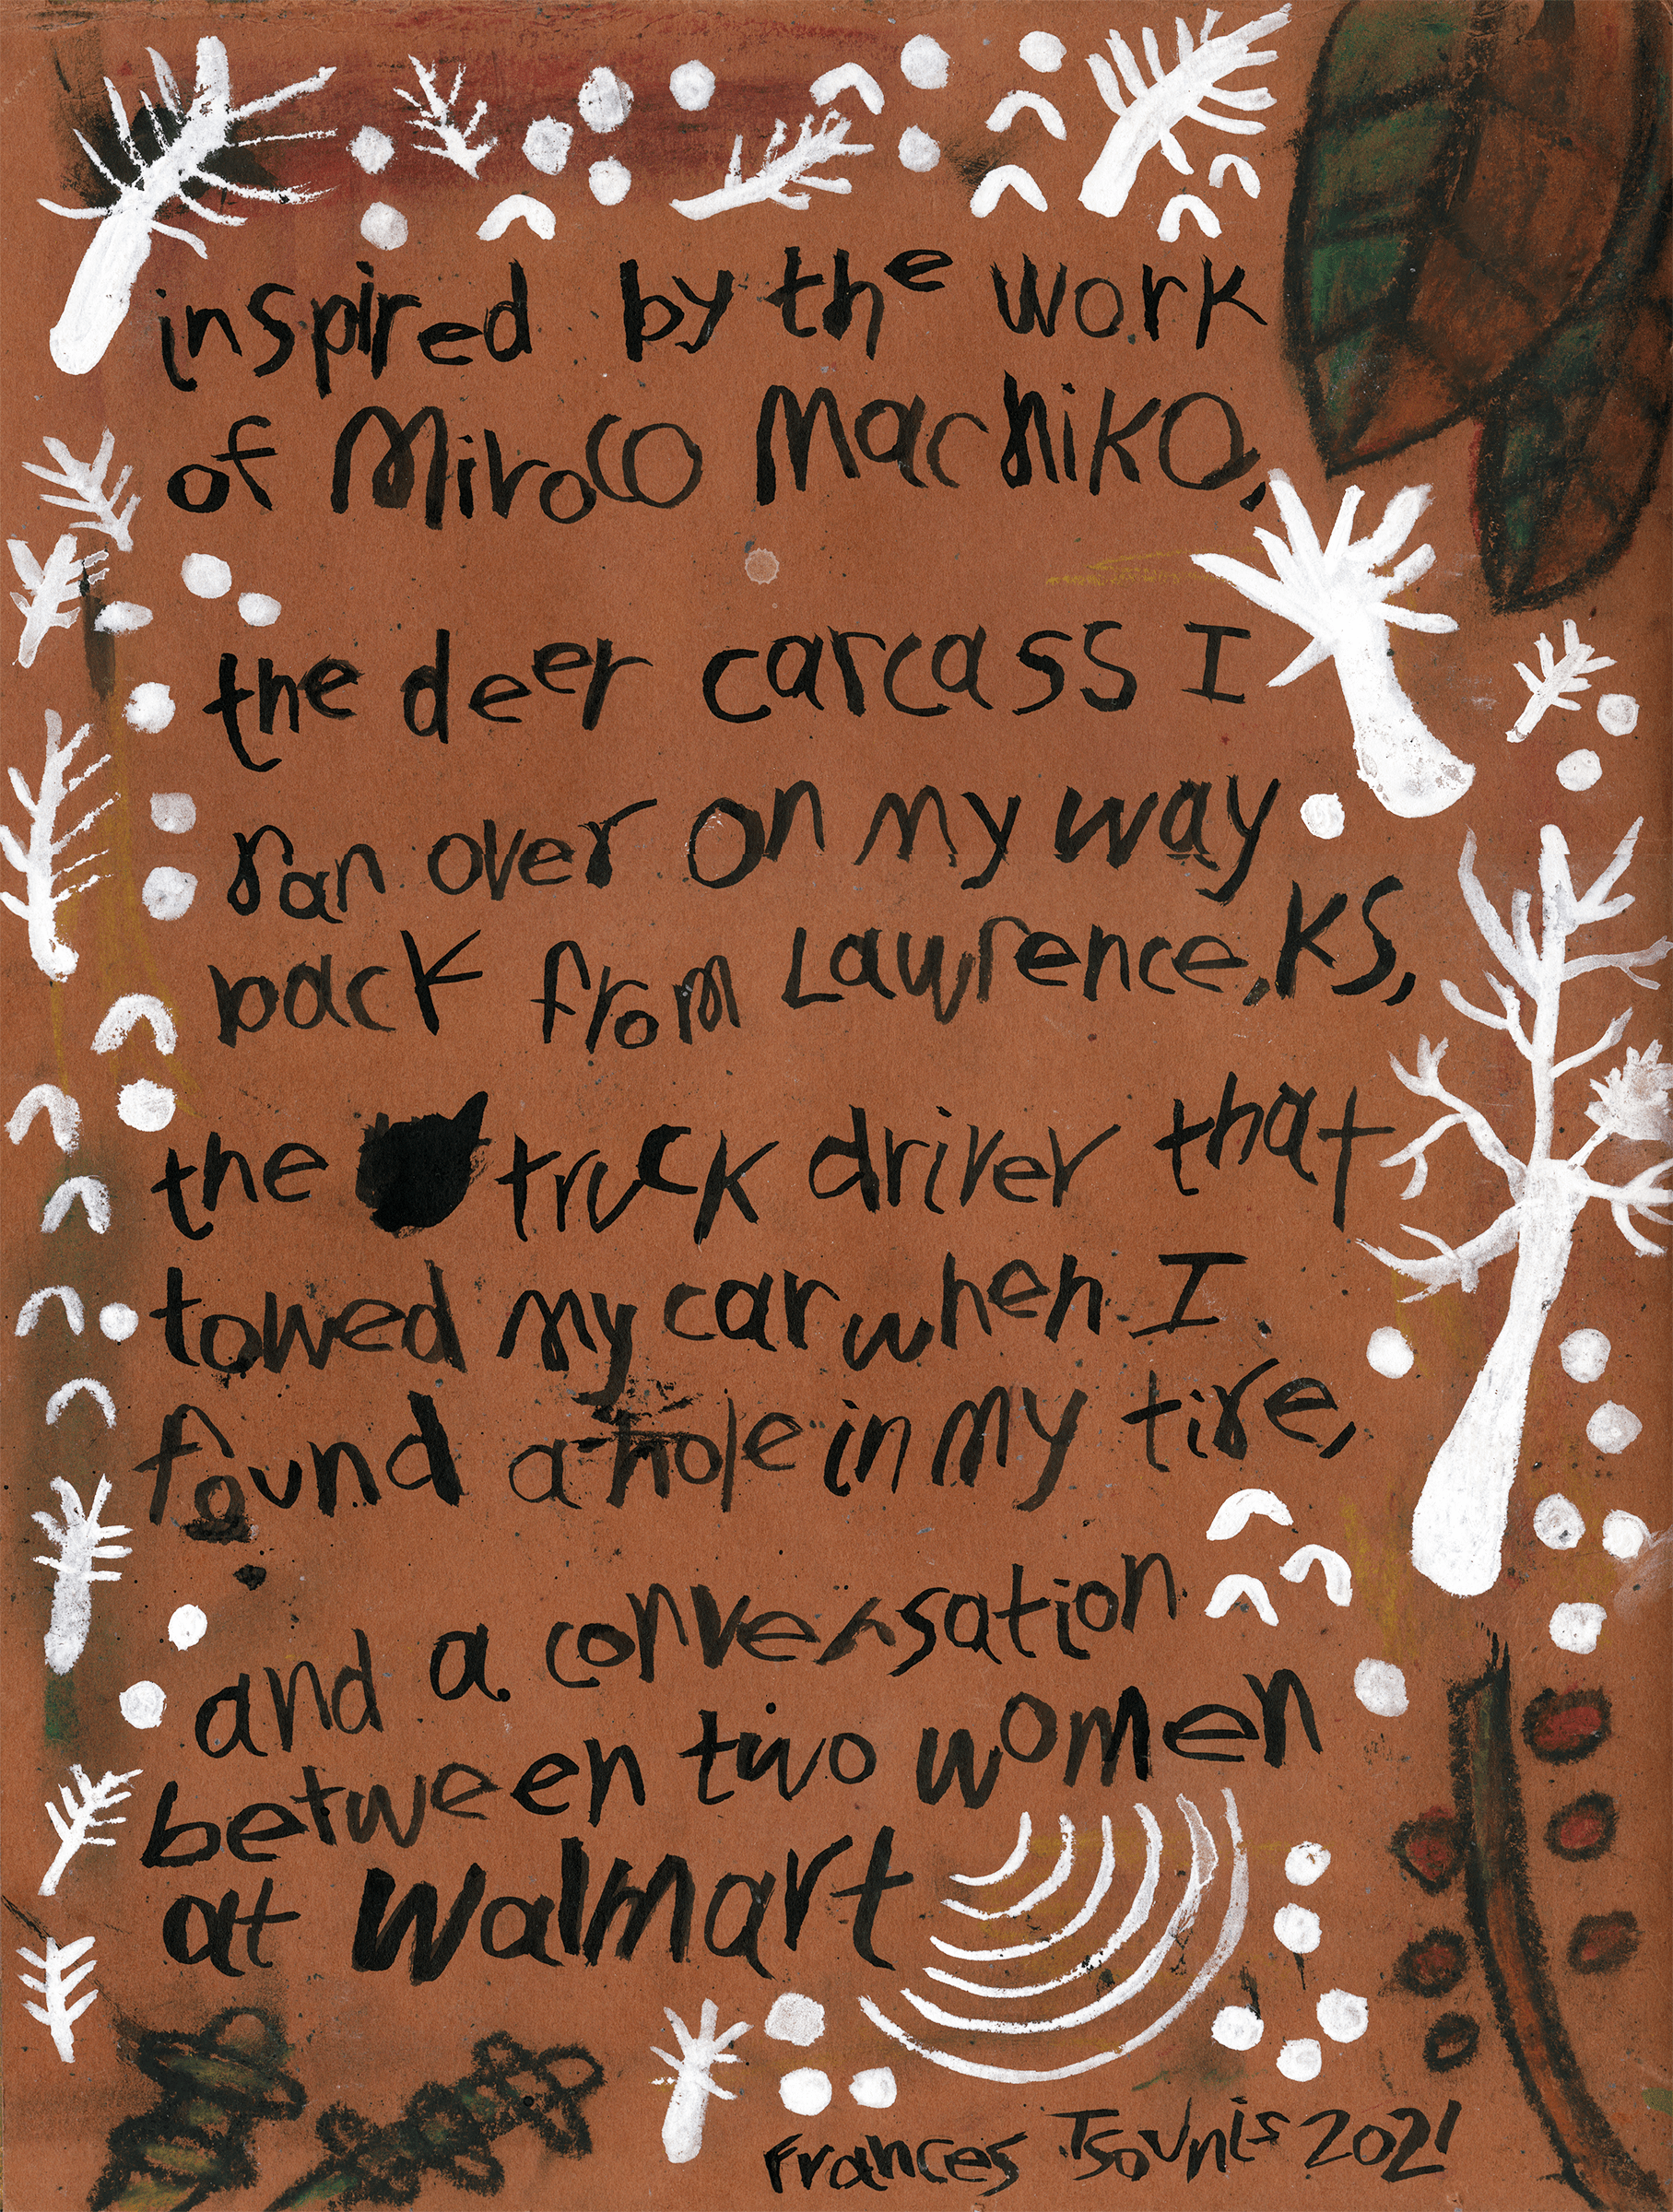 inspired by the work
of Miroco Machiko,
the deer carcass I
ran over on my way
back from Lawrence, KS,
the truck driver that
towed my car when I
found a hole in my tire,
and a conversation
between two women
at Walmart
Frances Tsounis 2021